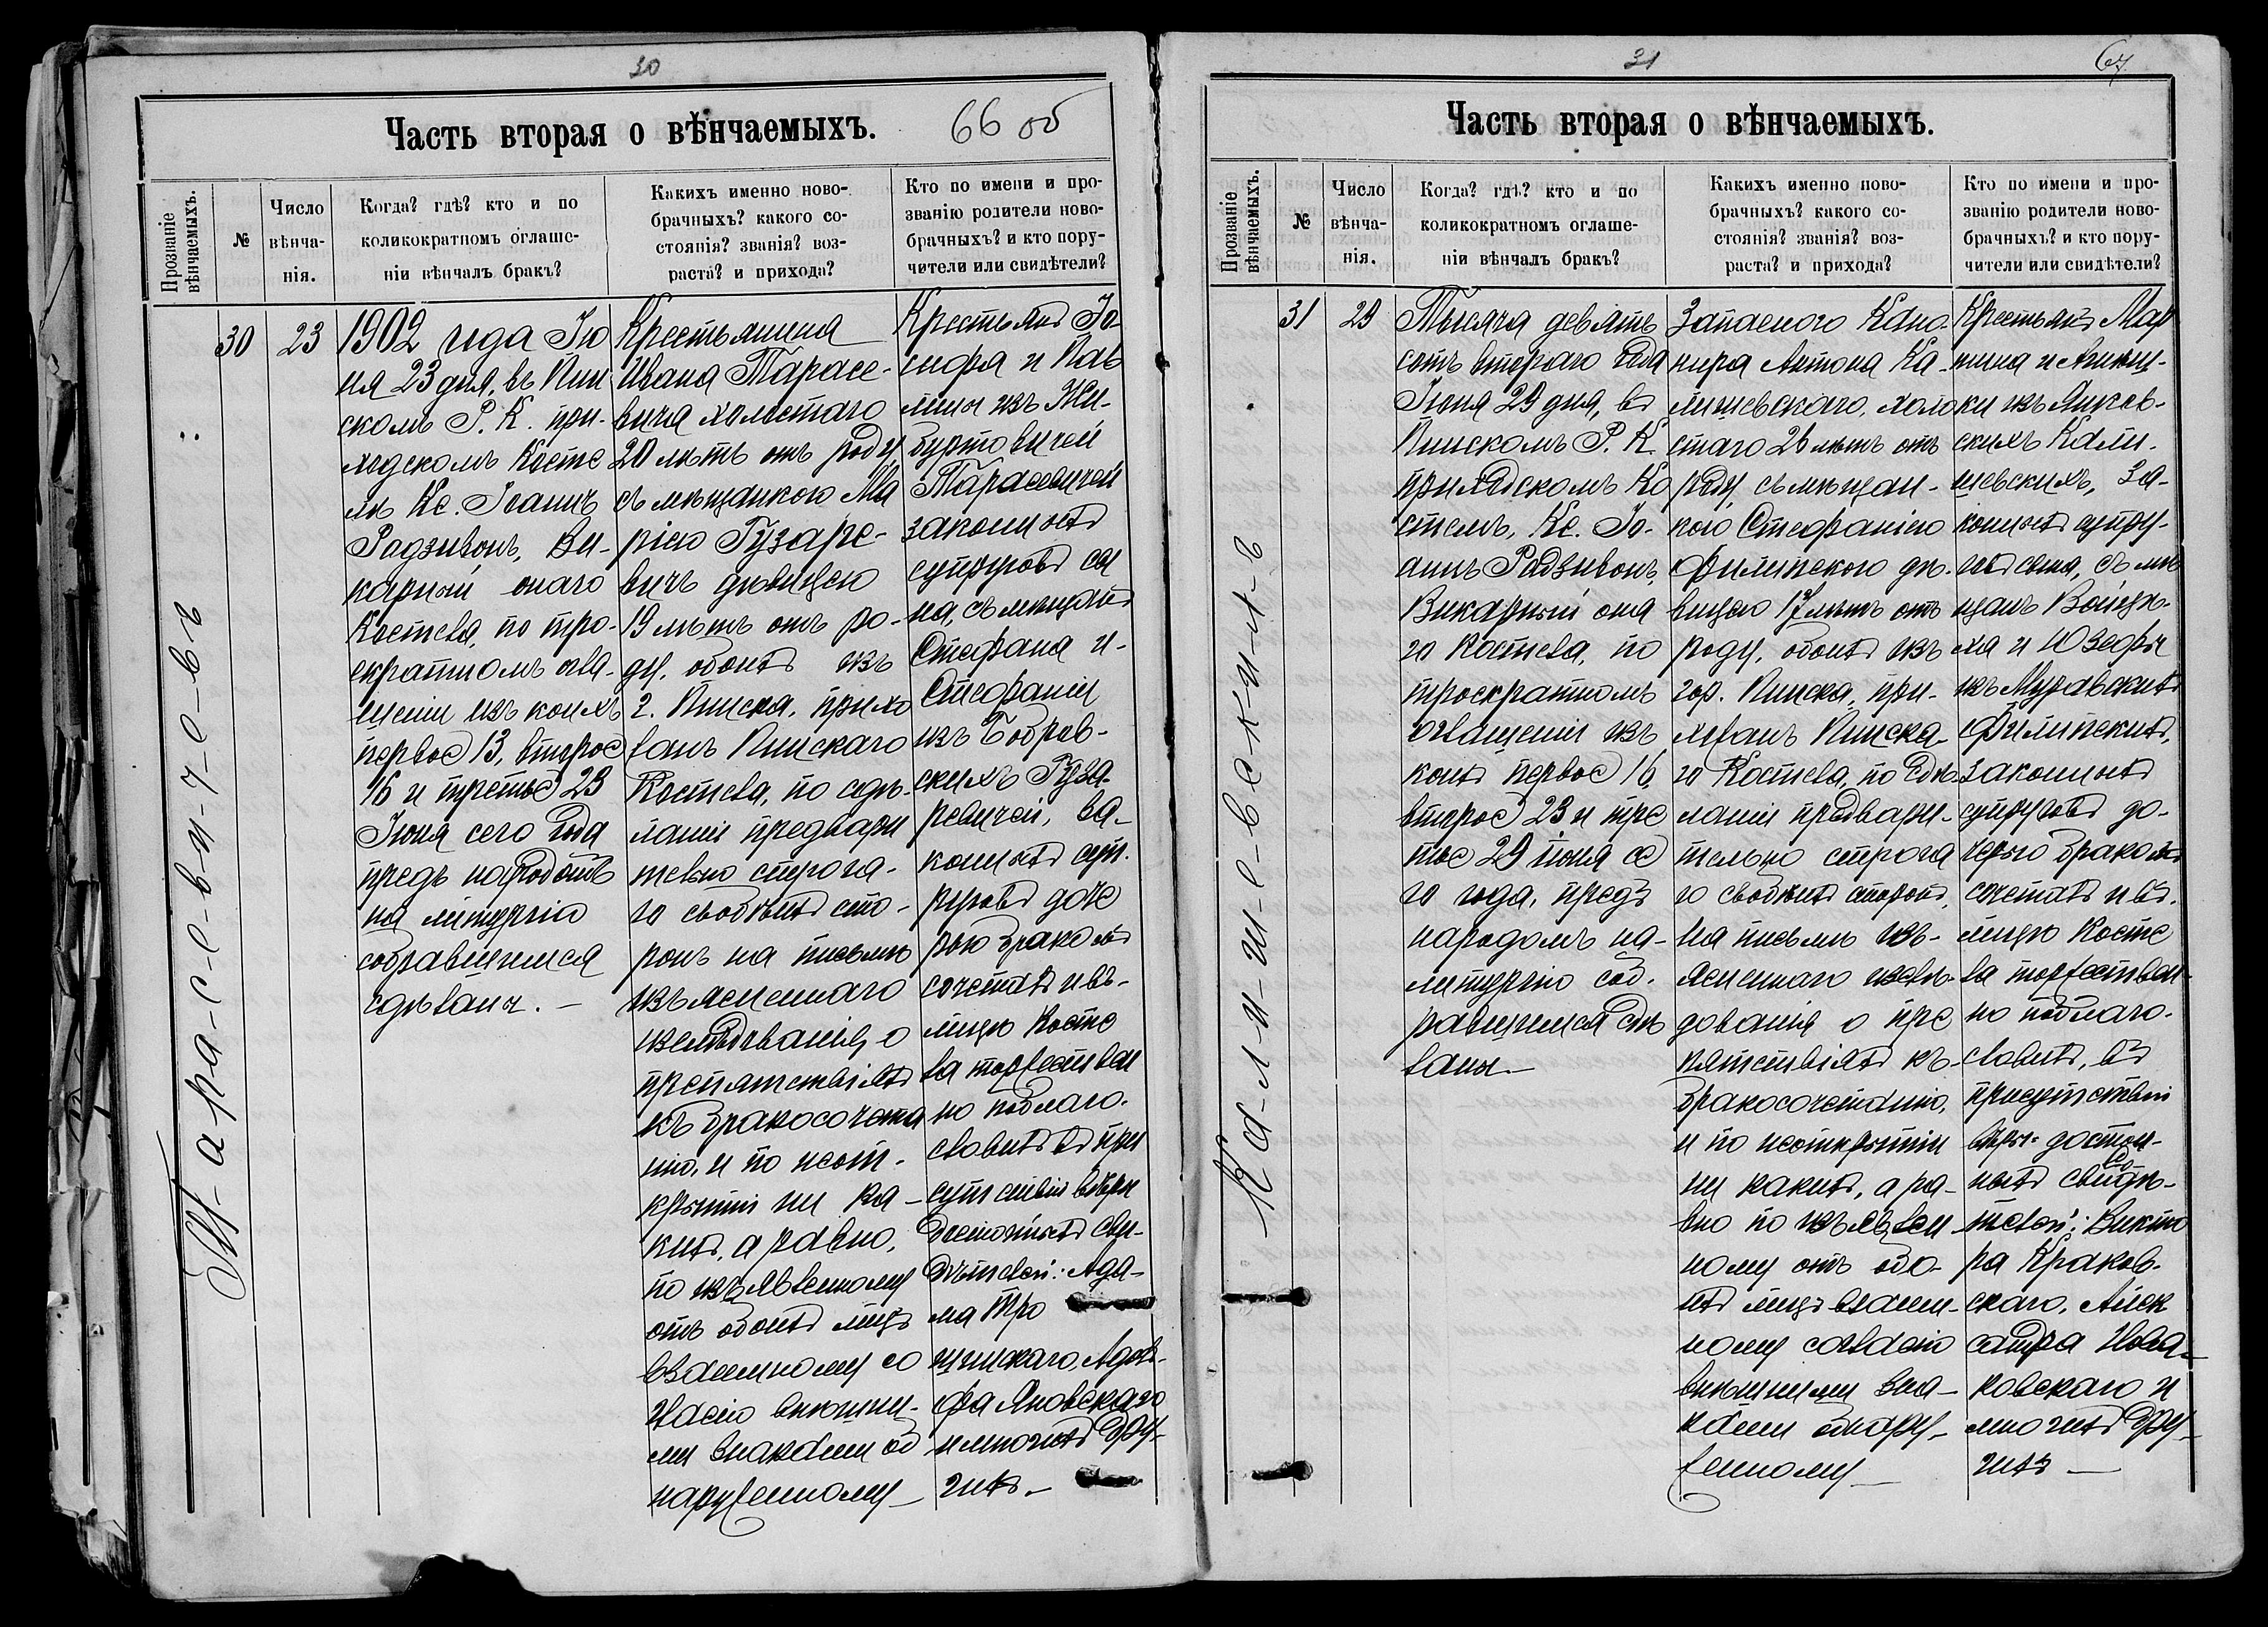 30
Часть вторая о вѣнчаемыхъ.
66 об
Прозваніе вѣнчаемыхъ.
№
Число вѣнча-
нія.
Когда? гдѣ? кто и по
коликократномъ оглаше-
ніи вѣнчалъ бракъ?
Какихъ именно ново-
брачныхъ? какого со-
стоянія? званія? воз-
раста? и прихода?
Кто по имени и про-
званію родители ново-
брачныхъ? и кто пору-
чители или свидѣтели?
Т-а-р-а-с-е-в-и-ч-е-в-ъ
30
23
1902 года Ію
ня 23 дня, въ Пин
скомъ Р. К. при-
ходскомъ Косте
лѣ Кс. Іоаннъ
Радзивонъ, Ви-
карный онаго
Костела, по трое-
кратномъ огла-
шеніи изъ коихъ
первое 13, второе
16 и третье 23
Іюня сего года
предъ народомъ
на литургію
собравшимся
сдѣланы. —
Крестьянина
Ивана Тарасе-
вича холостаго
20 лѣтъ отъ роду
съ мѣщанкою Ма
ріею Гузаре-
вичъ дѣвицею
19 лѣтъ отъ ро-
ду, обоихъ изъ
г. Пинска, прихо
жанъ Пинскаго
Костела, по сдѣ-
ланіи предвари
тельно строга-
го съ обѣихъ сто-
ронъ на письмѣ
изъясненнаго
изслѣдованія, о
препятствіяхъ
къ бракосочета
нію, и по неот-
крытіи ни ка-
кихъ, а равно,
по изъявленному
отъ обоихъ лицъ
взаимному со
гласію внѣшни-
ми знаками об
наруженному —
Крестьянъ Іо-
сифа и Пав
лины изъ Жи-
буртовичей
Тарасевичей
законныхъ
супруговъ сы
на, съ мѣщанъ
Стефана и
Стефаніи
изъ Бобров-
скихъ Гуза-
ревичей, за-
конныхъ суп-
руговъ доче
рью бракомъ
сочеталъ и въ
лицѣ Косте
ла торжествен
но поблаго-
словилъ въ при
сутствіи вѣры
достойныхъ сви-
дѣтелей: Ада-
ма Тро
цинскаго, Адоль-
фа Яновскаго
и многихъ дру-
гихъ —
31
67
Часть вторая о вѣнчаемыхъ.
Прозваніе вѣнчаемыхъ.
№
Число
вѣнча-
нія.
Когда? гдѣ? кто и по
коликократномъ оглаше-
ніи вѣнчалъ бракъ?
Какихъ именно ново-
брачныхъ? какого со-
стоянія? званія? воз-
раста? и прихода?
Кто по имени и про-
званію родители ново-
брачныхъ? и кто пору-
чители или свидѣтели?
К-а-л-и-ш-е-в-с-к-и-х-ъ
31
29
Тысяча девять
сотъ втораго года
Іюня 29 дня, въ
Пинскомъ Р. К.
приходскомъ Ко
стелѣ, Кс. Іо-
аннъ Радзивонъ,
Викарный она
го Костела, по
троекратномъ
оглашеніи изъ
коихъ первое 16,
второе 23 и тре
тье 29 іюня се
го года, предъ
народомъ на-
литургію соб-
равшимся сдѣ
ланы —
Запаснаго Кано-
нира Антона Ка-
лишевскаго, холо
стаго 26 лѣтъ отъ
роду съ мѣщан-
кою Стефаніею
Филипскою дѣ-
вицею 17 лѣтъ отъ
роду, обоихъ изъ
гор. Пинска, при-
хожанъ Пинска-
го Костела, по сдѣ-
ланіи предвари-
тельно строга
го съ обѣихъ сторонъ,
на письмѣ изъ-
ясненнаго изслѣ-
дованія о пре
пятствіяхъ къ-
бракосочетанію,
и по неоткрытіи
ни какихъ, а ра-
вно по изъявлен-
ному отъ обо-
ихъ лицъ взаим-
ному согласію
внѣшними зна-
ками обнару-
женному —
Крестьянъ Мар
тина и
ки изъ Янков-
скихъ Кали-
шевскихъ, за-
конныхъ супру-
говъ сына, съ мѣ
щанъ Войцѣ-
ха и Юзефы
изъ Муравскихъ
Филипскихъ,
законныхъ
супруговъ до-
черью бракомъ
сочеталъ и въ
лицѣ Косте
ла торжествен-
но поблаго-
словилъ, въ
присутствіи
вѣры достой-
ныхъ свидѣ-
телей: Викто
ра Краков-
скаго, Алек
сандра Нова-
ковскаго и
многихъ дру-
гихъ —